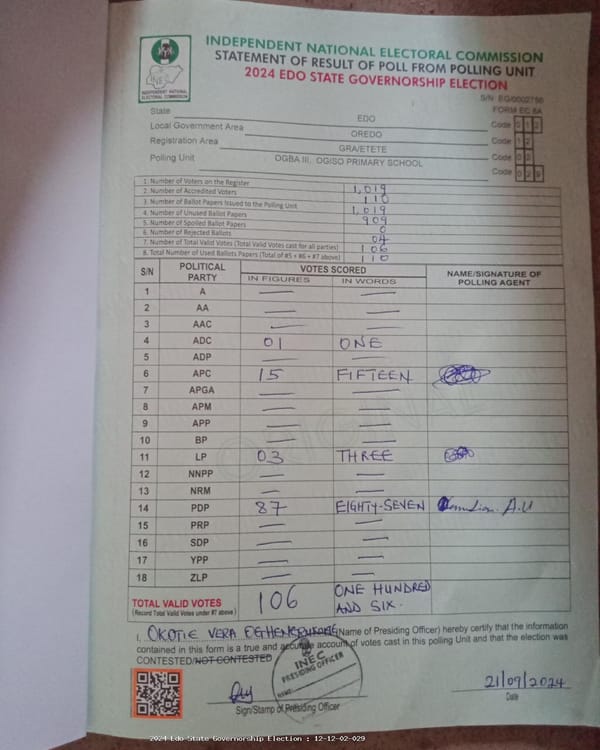 INDEPENDENT NATIONAL ELECTORAL COMMISSION
STATEMENT OF RESULT OF POLL FROM POLLING UNIT
2024 EDO STATE GOVERNORSHIP ELECTION
INEC
INDEPENDENT NATIONAL ELECTORAL COMMISSION
S/N: EG/0002756
FORM EC 8A
State EDO Code 0 1 2
Local Government Area OREDO Code 1 2
Registration Area GRA/ETETE Code 0 2
Polling Unit OGBA III, OGISO PRIMARY SCHOOL Code 0 2 9
1. Number of Voters on the Register 1,019
2. Number of Accredited Voters 110
3. Number of Ballot Papers Issued to the Polling Unit 1,019
4. Number of Unused Ballot Papers 909
5. Number of Spoiled Ballot Papers 0
6. Number of Rejected Ballots 04
7. Number of Total Valid Votes (Total Valid Votes cast for all parties) 106
8. Total Number of Used Ballots Papers (Total of #5 + #6 + #7 above) 110
S/N POLITICAL PARTY VOTES SCORED NAME/SIGNATURE OF POLLING AGENT
IN FIGURES IN WORDS
1 A — —
2 AA — —
3 AAC — —
4 ADC 01 ONE
5 ADP — —
6 APC 15 FIFTEEN
7 APGA — —
8 APM — —
9 APP — —
10 BP — —
11 LP 03 THREE
12 NNPP — —
13 NRM — —
14 PDP 87 EIGHTY-SEVEN A.U
15 PRP — —
16 SDP — —
17 YPP — —
18 ZLP — —
TOTAL VALID VOTES 106 ONE HUNDRED AND SIX.
(Record Total Valid Votes under #7 above)
I, OKOTIE VERA (Name of Presiding Officer) hereby certify that the information
contained in this form is a true and accurate account of votes cast in this polling Unit and that the election was
CONTESTED/NOT CONTESTED
INEC
PRESIDING OFFICER
NAME
21/09/2024
Sign/Stamp of Presiding Officer Date
2024 Edo State Governorship Election : 12-12-02-029